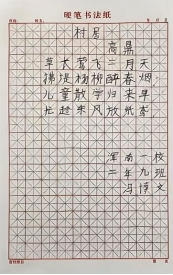 硬笔书法纸
村居
高鼎
草长莺飞二月天
拂堤杨柳醉春烟
儿童散学归来早
忙趁东风放纸鸢
浑南一校
二年九班
冯文